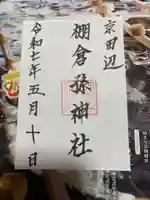 京田辺
棚倉孫神社
令和七年五月十日